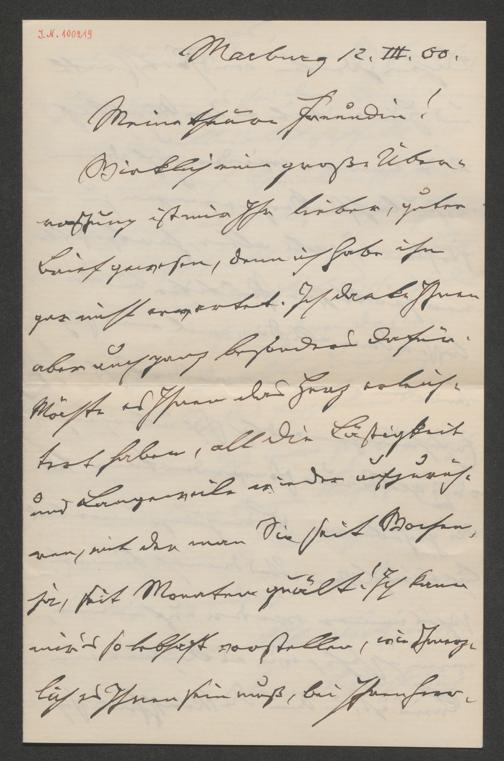 I.N. 100219
Marburg 12. III. 00.
Meine theure Freundin!
Wirklich eine große Über-
raschung ist mir Ihr lieber, guter
Brief gewesen, denn ich habe ihn
gar nicht erwartet. Ich danke Ihnen
aber auch ganz besonders dafür.
Möchte es Ihnen das Herz erleich-
tert haben, all die Lästigkeit
und Langeweile wieder aufzurüh-
ren, mit der man Sie seit Wochen,
ja, seit Monaten quält! Ich kann
mir's so lebhaft vorstellen, wie schmerz-
lich es Ihnen sein muß, bei Ihrem